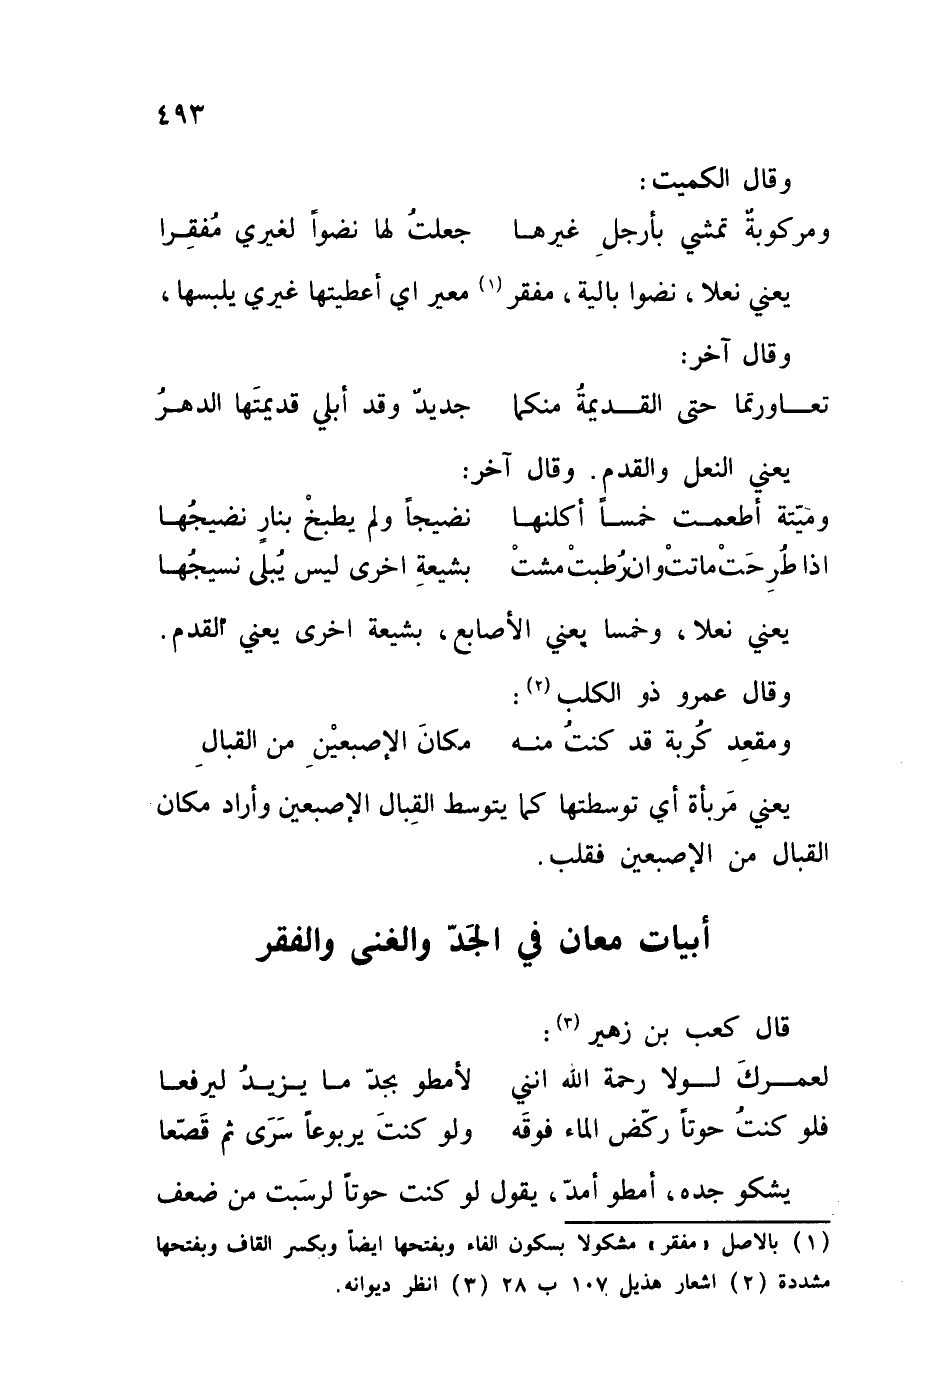 ٤٩٣
وقال الكميت :
ومركوبةٌ تمشي بأرجلِ غيرهـا جعلتُ لها نضواً لغيري مُفقِـرا
يعني نعلا ، نضوا بالية ، مفقر (١) معير اي أعطيتها غيري يلبسها ،
وقال آخر :
تعـــاورتما حتى القـــديمةُ منكما جديدٌ وقد أبلي قديمتَها الدهـرُ
يعني النعل والقدم . وقال آخر :
وميّتة أطعمـت خمسـاً أكلنهـا نضيجاً ولم يطبخْ بنارٍ نضيجُهـا
اذا طُرِحَتْ ماتتْ وان رُطبتْ مشتْ بشيعةِ اخرى ليس يُبلى نسيجُهـا
يعني نعلا ، وخمسا يعني الأصابع ، بشيعة اخرى يعني القدم .
وقال عمرو ذو الكلب (٢) :
ومقعِد كُربة قد كنتُ منـه مكانَ الإصبعيْنِ من القبالِ
يعني مَربأة أي توسطتها كما يتوسط القِبال الإصبعين وأراد مكان
القبال من الإصبعين فقلب .
أبيات معان في الجَدّ والغنى والفقر
قال كعب بن زهير (٣) :
لعمـــركَ لـــولا رحمة الله انني لأمطو بجدّ مـا يـزيـدُ ليرفعـا
فلو كنتُ حوتاً ركّض الماء فوقَه ولو كنتَ يربوعاً سَرَى ثم قَصّعا
يشكو جده ، أمطو أمدّ ، يقول لو كنت حوتاً لرسَبت من ضعف
(١) بالاصل «مفقر» مشكولا بسكون الفاء وبفتحها ايضاً وبكسر القاف وبفتحها
مشددة (٢) اشعار هذيل ١٠٧ ب ٢٨ (٣) انظر ديوانه .